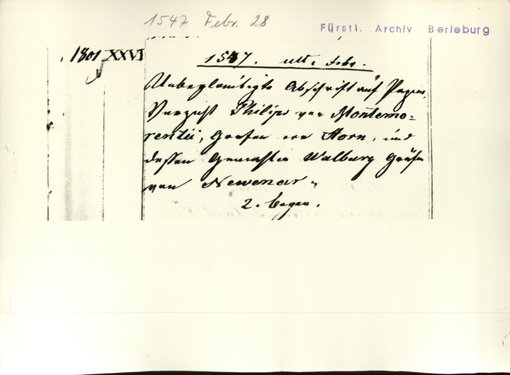 1547 Febr. 28
Fürstl. Archiv Berleburg
1801 XXVI
1547. ult. Febr.
Unbeglaubigte Abschrift auf Papier,
Verzicht Philips von Montemo-
rentii, Grafen von Horn, und
dessen Gemahlin Walburg Gräfin
von Newenar.
2. bogen.